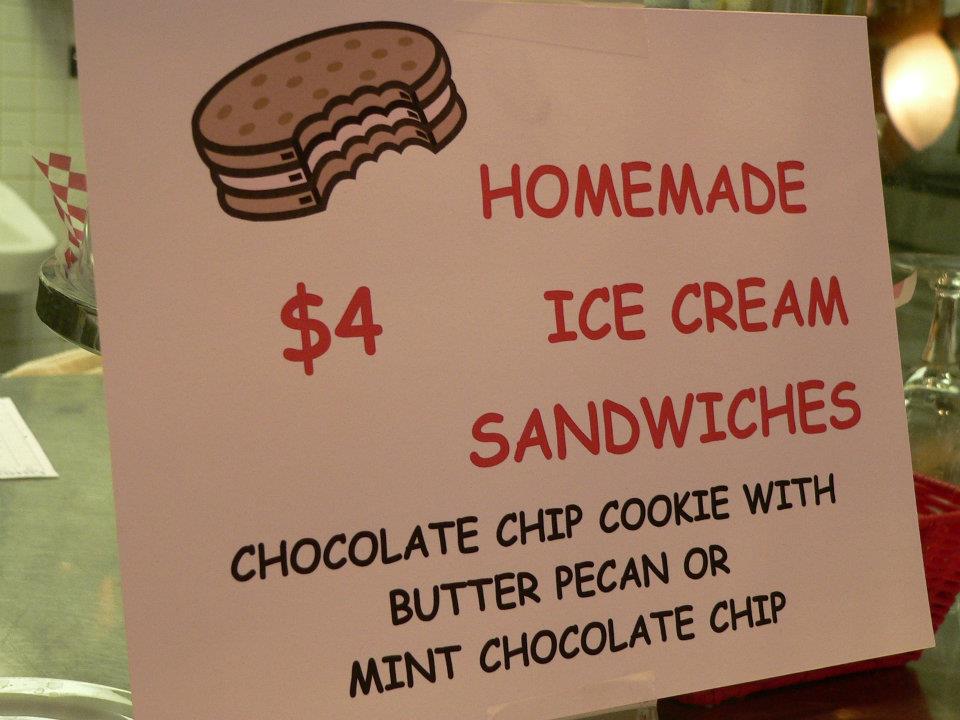 HOMEMADE
$4 ICE CREAM
SANDWICHES
CHOCOLATE CHIP COOKIE WITH
BUTTER PECAN OR
MINT CHOCOLATE CHIP